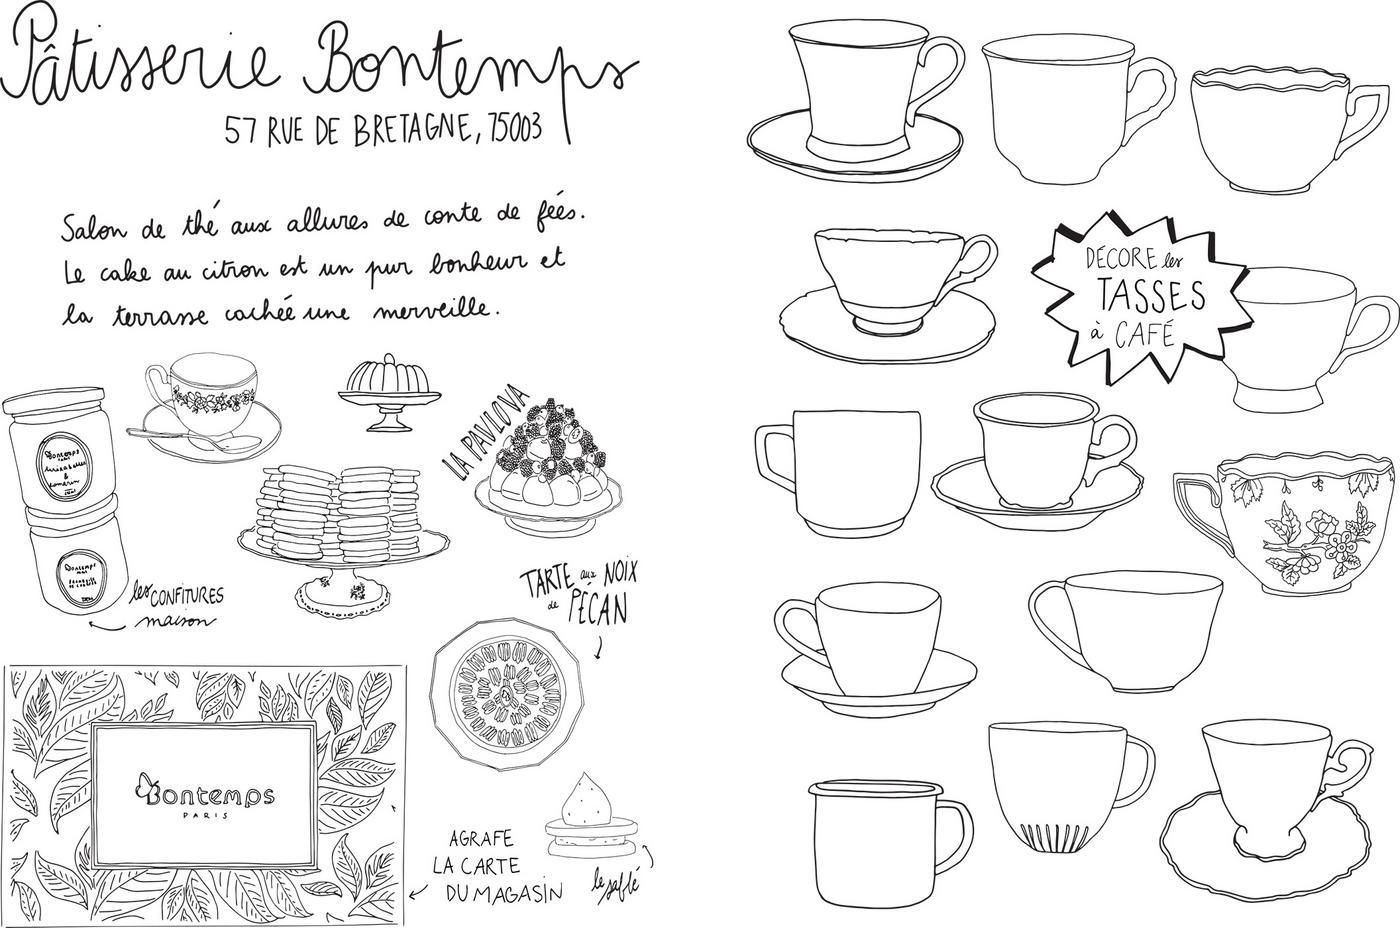 Pâtisserie Bontemps
57 RUE DE BRETAGNE, 75003
Salon de thé aux allures de conte de fées.
Le cake au citron est un pur bonheur et
la terrasse cachée une merveille.
LA PAVLOVA
Bontemps
PARIS
&
Bontemps
les CONFITURES
maison
TARTE aux NOIX
de PÉCAN
Bontemps
PARIS
AGRAFE
LA CARTE
DU MAGASIN
le sablé
DÉCORE les
TASSES
à CAFÉ